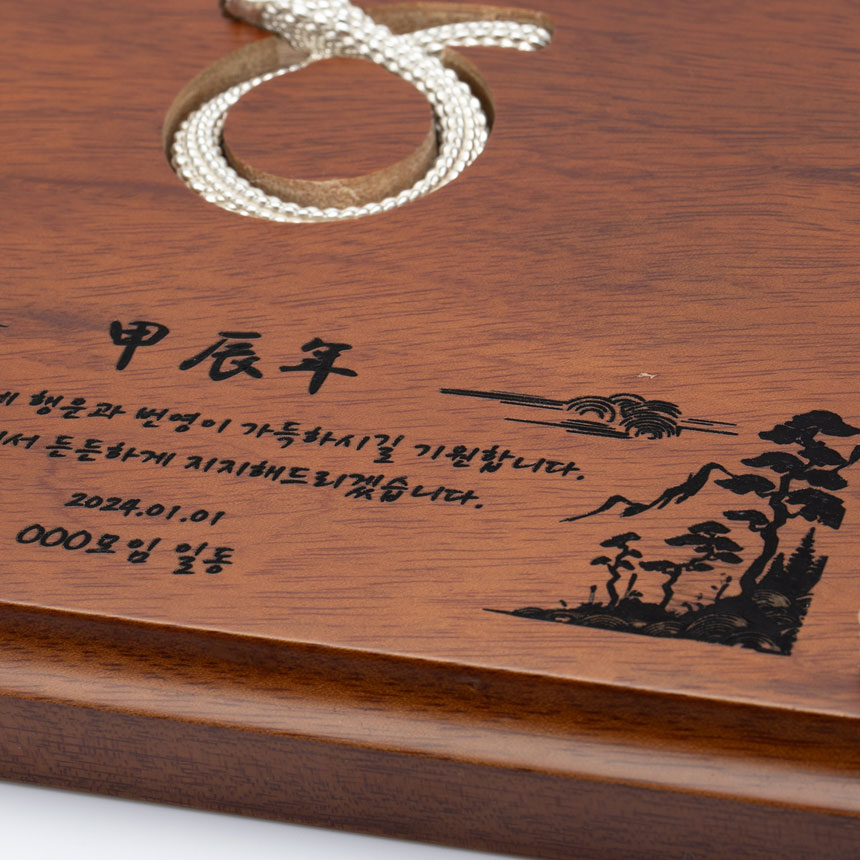 甲辰年
행운과 번영이 가득하시길 기원합니다.
든든하게 지지해드리겠습니다.
2024.01.01
OOO모임 일동